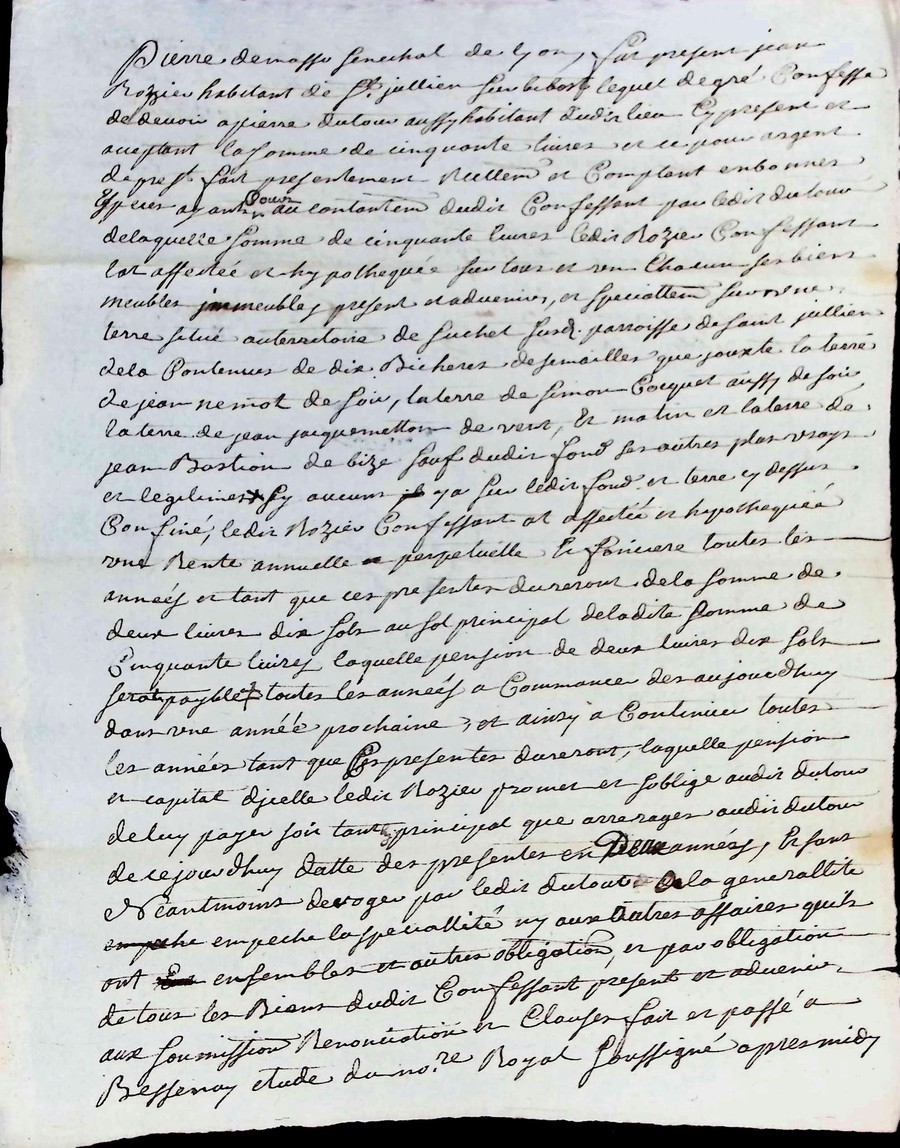 Pierre demasso senechal de lyon, fut present jean
Rozzier habitant de St jullien sur bibost lequel degré Confesse
de devoir a pierre dutour aussy habitant dudit lieu Cy present et
acceptant la somme de cinquante livres et ce pour argent
de prest fait presentement Reellemt et Comptant enbonnes
Especes ayant Cours au contantemt dudit Confessant par ledit dutour
delaquelle somme de cinquante livres ledit Rozier Confessant
lat affectée et hypothequée sur tous et un Chacun ses biens
meubles immeubles present et advenir, et speciallemt sur une
terre situé auterritoire de Suchet susd. parroisse de saint jullien
dela Contenues de dix Bicheres de semailles que jouxte la terre
de jean nemot de soir, laterre de Simon Cocquet aussy de soir
la terre de jean jacquemetton de vent, Et matin et laterre de
jean Bastion de bize sauf dudit fond ses autres plus vrays
et legitimes sy aucuns y a sur ledit fond et terre cy dessus
Confiné, ledit Rozier Confessant at affectée et hipothequéé
une Rente annuelle perpetuelle Et fonciere toutes les
années et tant que ces presentes dureront dela somme de
deux livres dix sols au sol principal deladite somme de
Cinquante livres laquelle pension de deux livres dix sols
serat payable toutes les années a Commance des aujourdhuy
dans une année prochaine, et ainsy a Continuer toutes
les années tant que Ces presentes dureront, laquelle pension
et capital dicelle ledit Rozier promet et soblige audit dutour
deluy payer soit tant principal que arrerages audit dutour
de cejourdhuy datte des presentes en Deux années, Et sans
Néantmoins deroger par ledit dutour dela generallité
empeche empeche la speciallité ny aux Autres affaires quils
ont ensembles et autres obligations, et par obligation
de tous les Biens dudit Confessant present et advenir
aux soumission Renonciation et Clauses fait et passé a
Bessenay etude du nore Royal soussigné apres midy